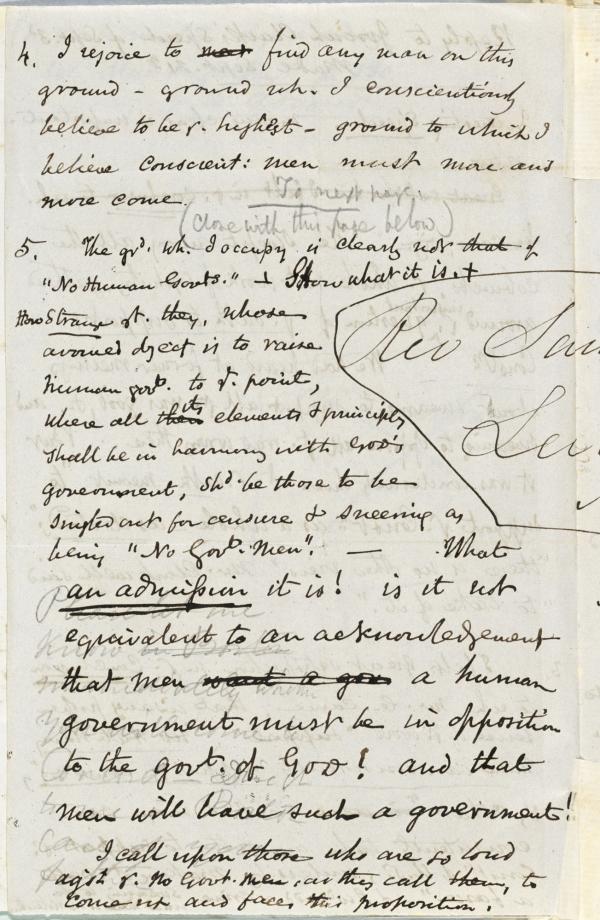 4. I rejoice to meet find any man on this
ground - ground wh. I conscientiously
believe to be ye. highest - ground to which I
believe conscient: men must more and
more come.
To next page.
(close with this page below)
5. The grd. wh. I occupy is clearly not that of
"No Human Govts." - Show what it is. +
How Strange yt. they, whose
avowed object is to raise
human govt. to ye. point,
where all their its elements & principles
shall be in harmony with God's
government, shd. be those to be
singled out for censure & sneering as
being "No Govt. Men". — What
an admission it is! is it not
equivalent to an acknowledgement
that men want a gov a human
government must be in opposition
to the govt. of God! and that
men will have such a government!
I call upon those who are so loud
agst. ye. No Govt. men, as they call them, to
come up and face this proposition.
Rev Sam